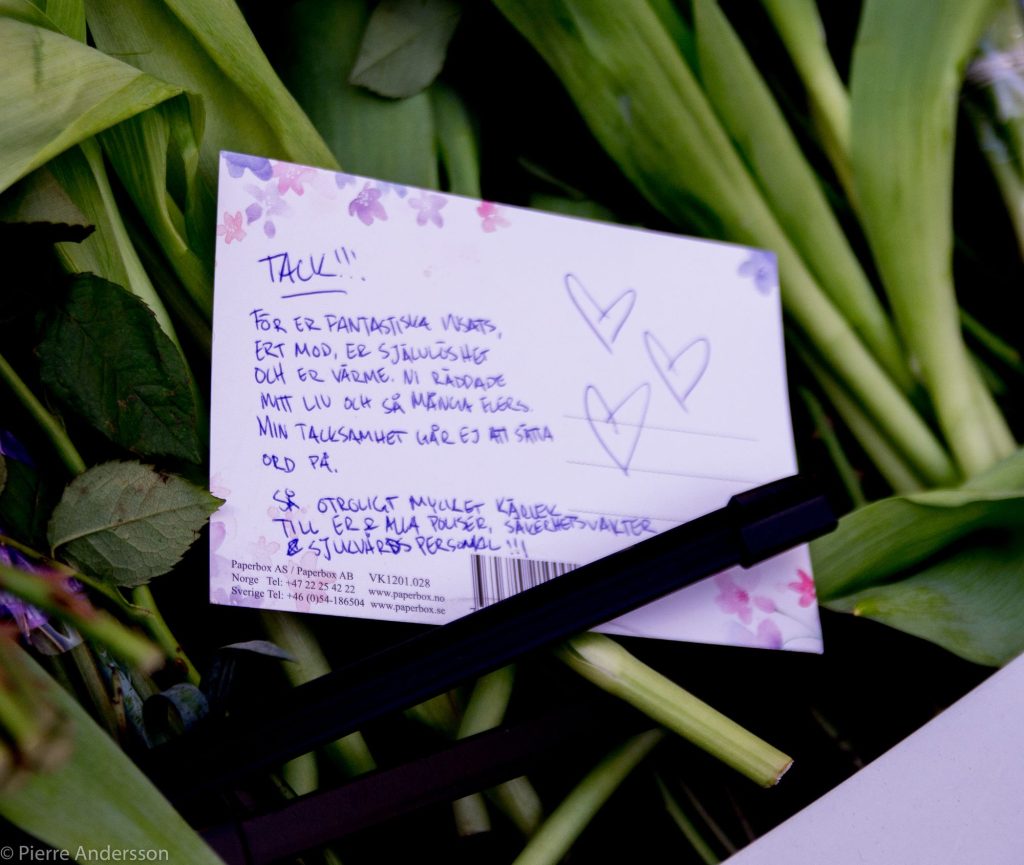 TACK!!!
FÖR ER FANTASTISKA INSATS,
ERT MOD, ER SJÄLVLÖSHET
OCH ER VÄRME. NI RÄDDADE
MITT LIV OCH SÅ MÅNGA FLERS.
MIN TACKSAMHET GÅR EJ ATT SÄTTA
ORD PÅ.
SÅ OTROLIGT MYCKET KÄRLEK
TILL ER & ALLA POLISER, SÄKERHETSVAKTER
& SJUKVÅRDSPERSONAL!!!
Paperbox AS / Paperbox AB VK1201.028
Norge Tel: +47 22 25 42 22 www.paperbox.no
Sverige Tel: +46 (0)54-186504 www.paperbox.se
© Pierre Andersson